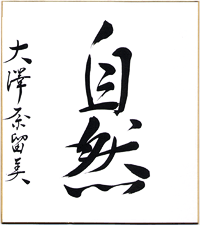 自然
大澤奈留美